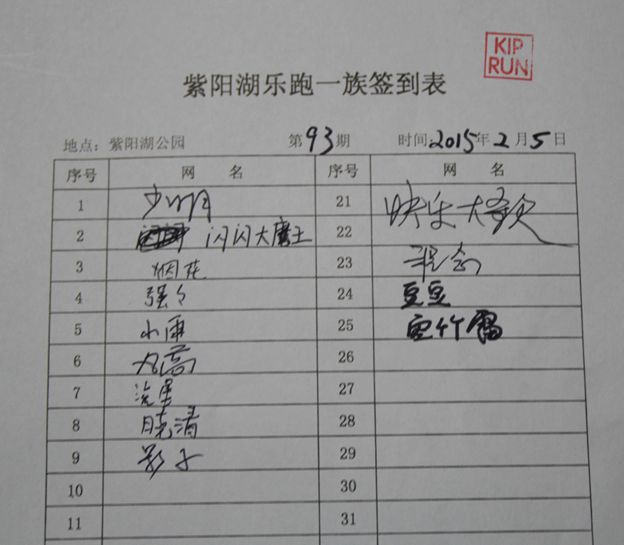 KIP
RUN
紫阳湖乐跑一族签到表
地点：紫阳湖公园 第93期 时间2015年2月5日
序号 网 名 序号 网 名
1 21 快乐大
2 闪闪大魔王 22
3 烟花 23
4 强々 24 豆豆
5 小雨 25
6 26
7 27
8 晓清 28
9 影子 29
10 30
11 31